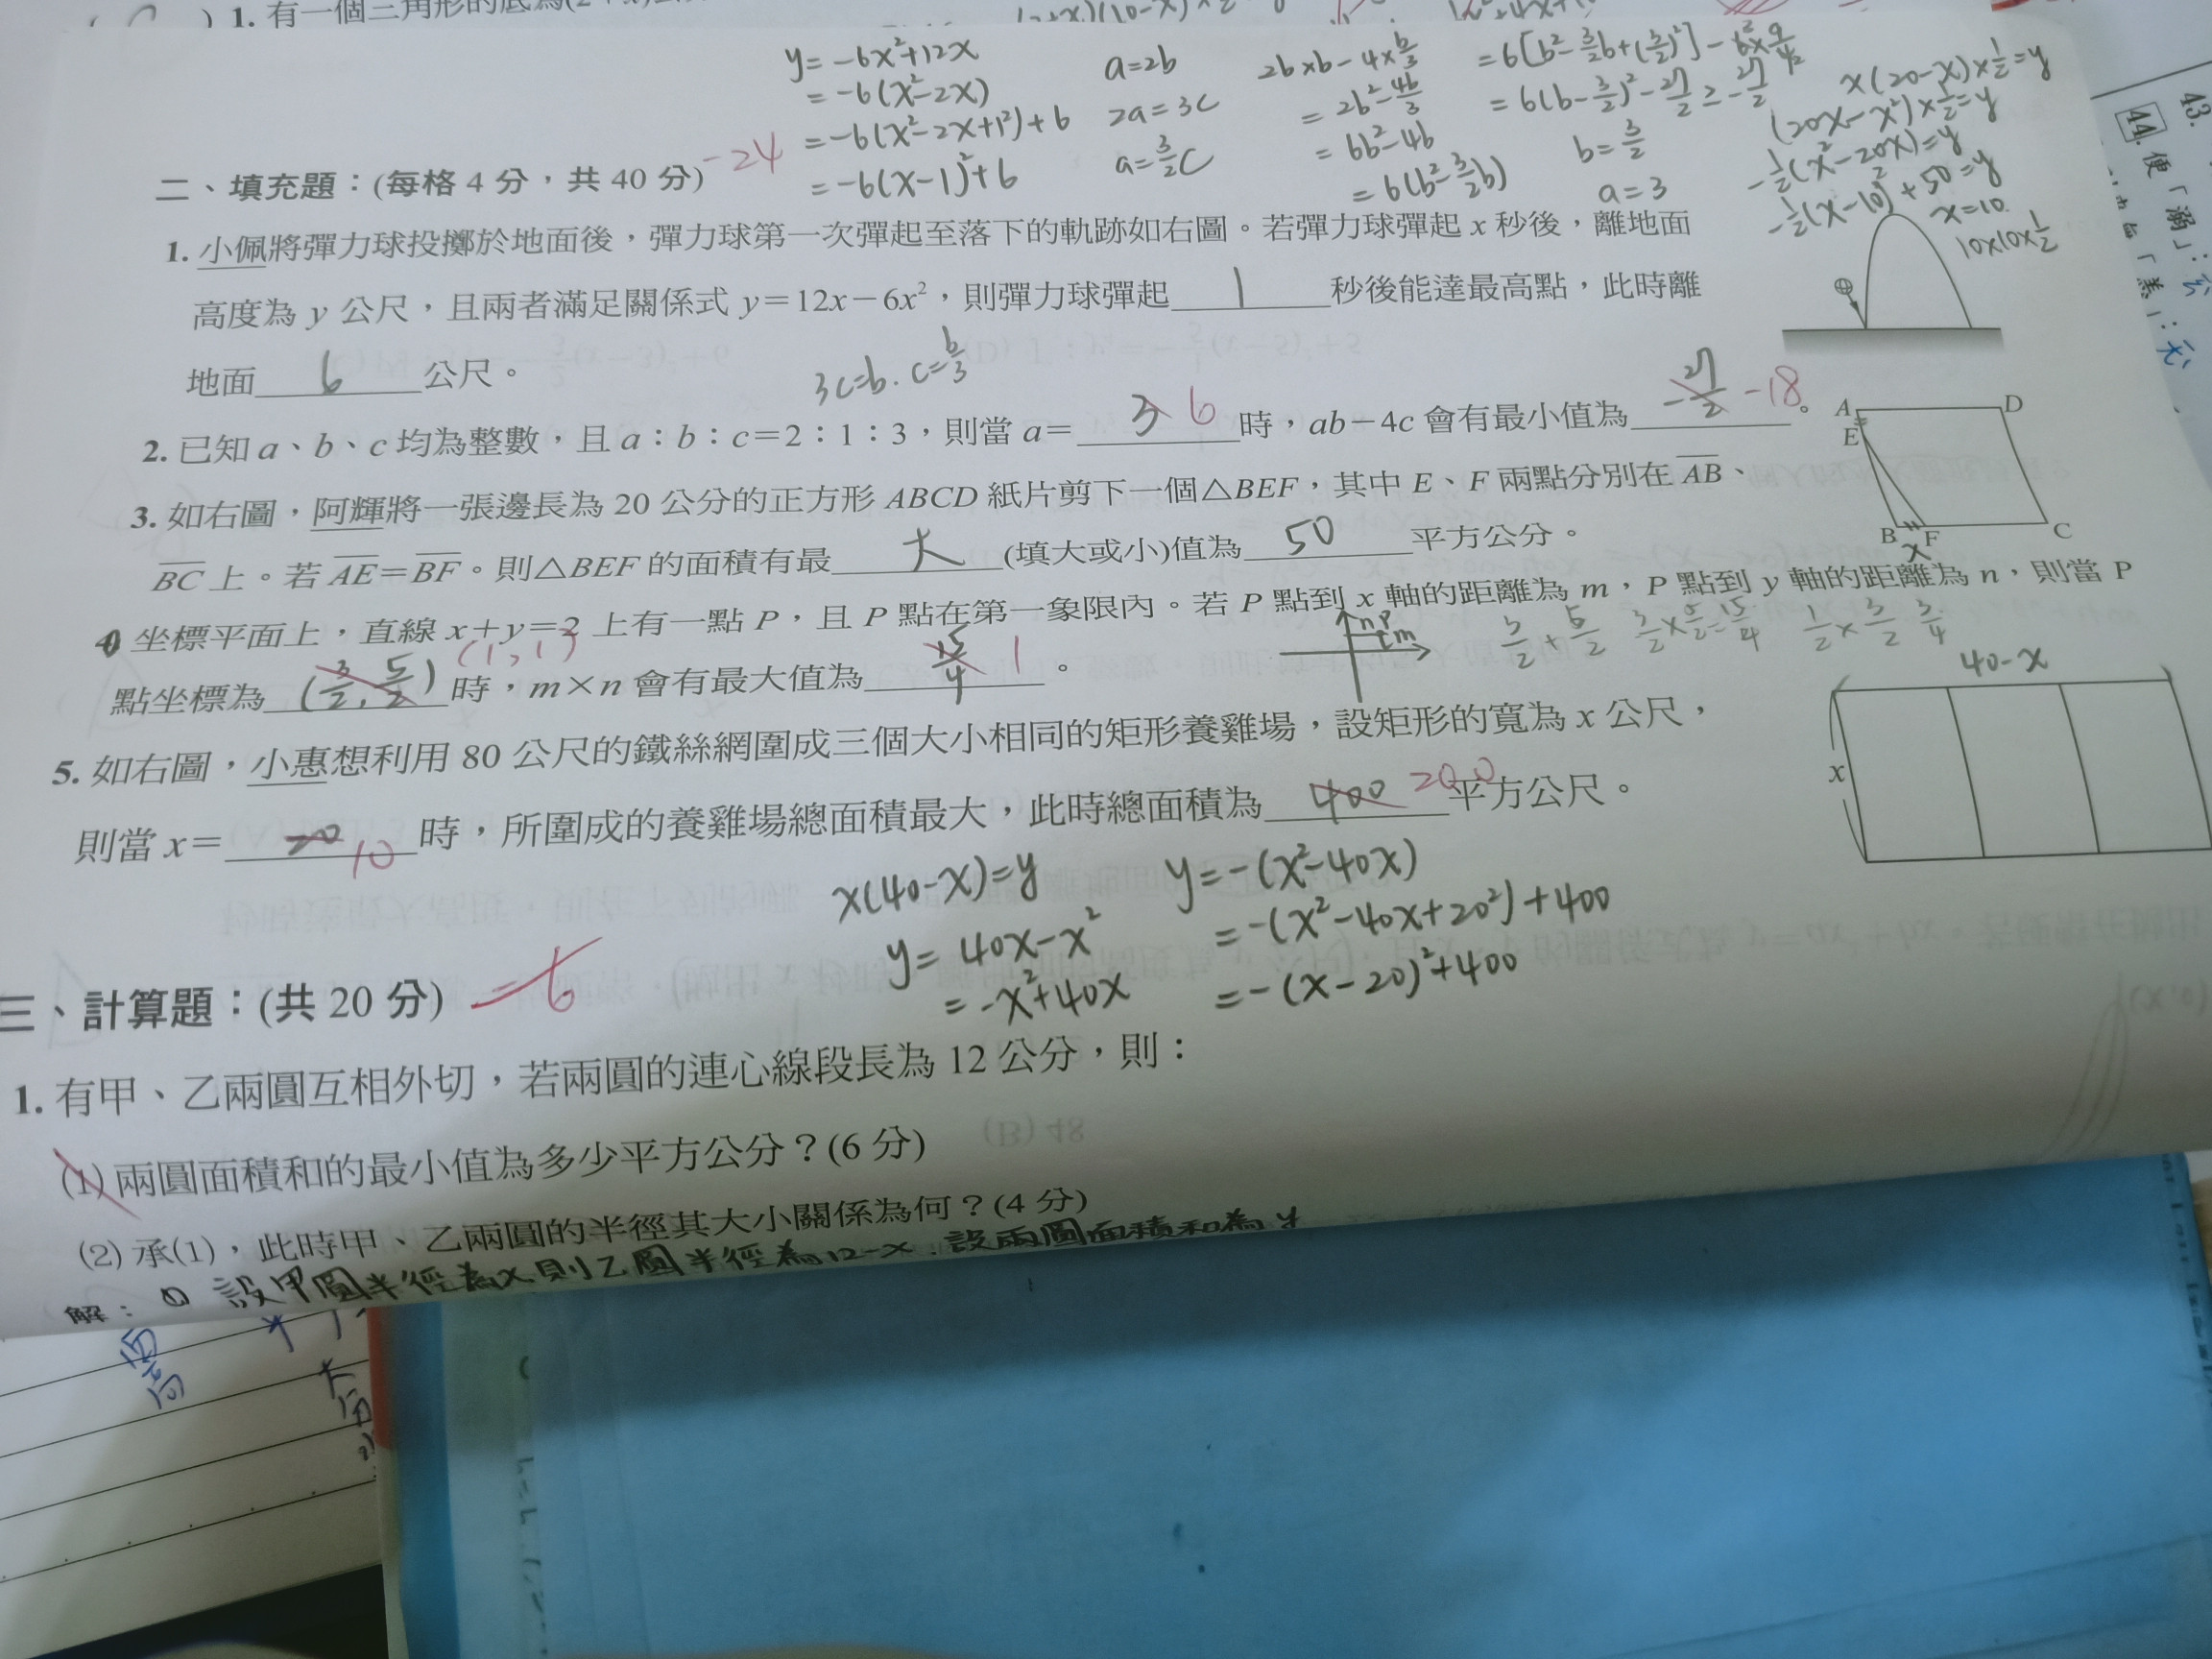 1. 有一個三角形的底為(2+x)
y=-6x²+12x
=-6(x²-2x)
=-6(x²-2x+1²)+6
=-6(x-1)²+6
a=2b
2a=3c
a=3/2c
2b×b-4×b/3
=2b²-4b/3
=6b²-4b
=6(b²-3/2b)
=6[b²-3/2b+(3/2)²]-6×9/4
=6(b-3/2)²-27/2≥-27/2
b=3/2
a=3
x(20-x)×1/2=y
(20x-x²)×1/2=y
-1/2(x²-20x)=y
-1/2(x-10)²+50=y
x=10
10×10×1/2
43.
44. 便「溺」:
二、填充題：(每格 4 分，共 40 分) -24
1. 小佩將彈力球投擲於地面後，彈力球第一次彈起至落下的軌跡如右圖。若彈力球彈起 x 秒後，離地面
高度為 y 公尺，且兩者滿足關係式 y=12x-6x²，則彈力球彈起 1 秒後能達最高點，此時離
地面 6 公尺。
3c=b. c=b/3
2. 已知 a、b、c 均為整數，且 a：b：c=2：1：3，則當 a= 3 6 時，ab-4c 會有最小值為 -27/2 -18 。
3. 如右圖，阿輝將一張邊長為 20 公分的正方形 ABCD 紙片剪下一個△BEF，其中 E、F 兩點分別在 AB、
BC 上。若 AE=BF。則△BEF 的面積有最 大 (填大或小)值為 50 平方公分。
A D
E
B F C
x
4. 坐標平面上，直線 x+y=2 上有一點 P，且 P 點在第一象限內。若 P 點到 x 軸的距離為 m，P 點到 y 軸的距離為 n，則當 P
點坐標為 (3/2, 5/2) (1,1) 時，m×n 會有最大值為 15/4 1 。
n P
m
3/2+5/2 3/2×5/2=15/4 1/2×3/2 3/4
5. 如右圖，小惠想利用 80 公尺的鐵絲網圍成三個大小相同的矩形養雞場，設矩形的寬為 x 公尺，
則當 x= 20 10 時，所圍成的養雞場總面積最大，此時總面積為 400 200 平方公尺。
40-x
x
x(40-x)=y
y=40x-x²
=-x²+40x
y=-(x²-40x)
=-(x²-40x+20²)+400
=-(x-20)²+400
三、計算題：(共 20 分) -6
1. 有甲、乙兩圓互相外切，若兩圓的連心線段長為 12 公分，則：
(1) 兩圓面積和的最小值為多少平方公分？(6 分)
(2) 承(1)，此時甲、乙兩圓的半徑其大小關係為何？(4 分)
解： (1) 設甲圓半徑為x,則乙圓半徑為12-x.設兩圓面積和為y